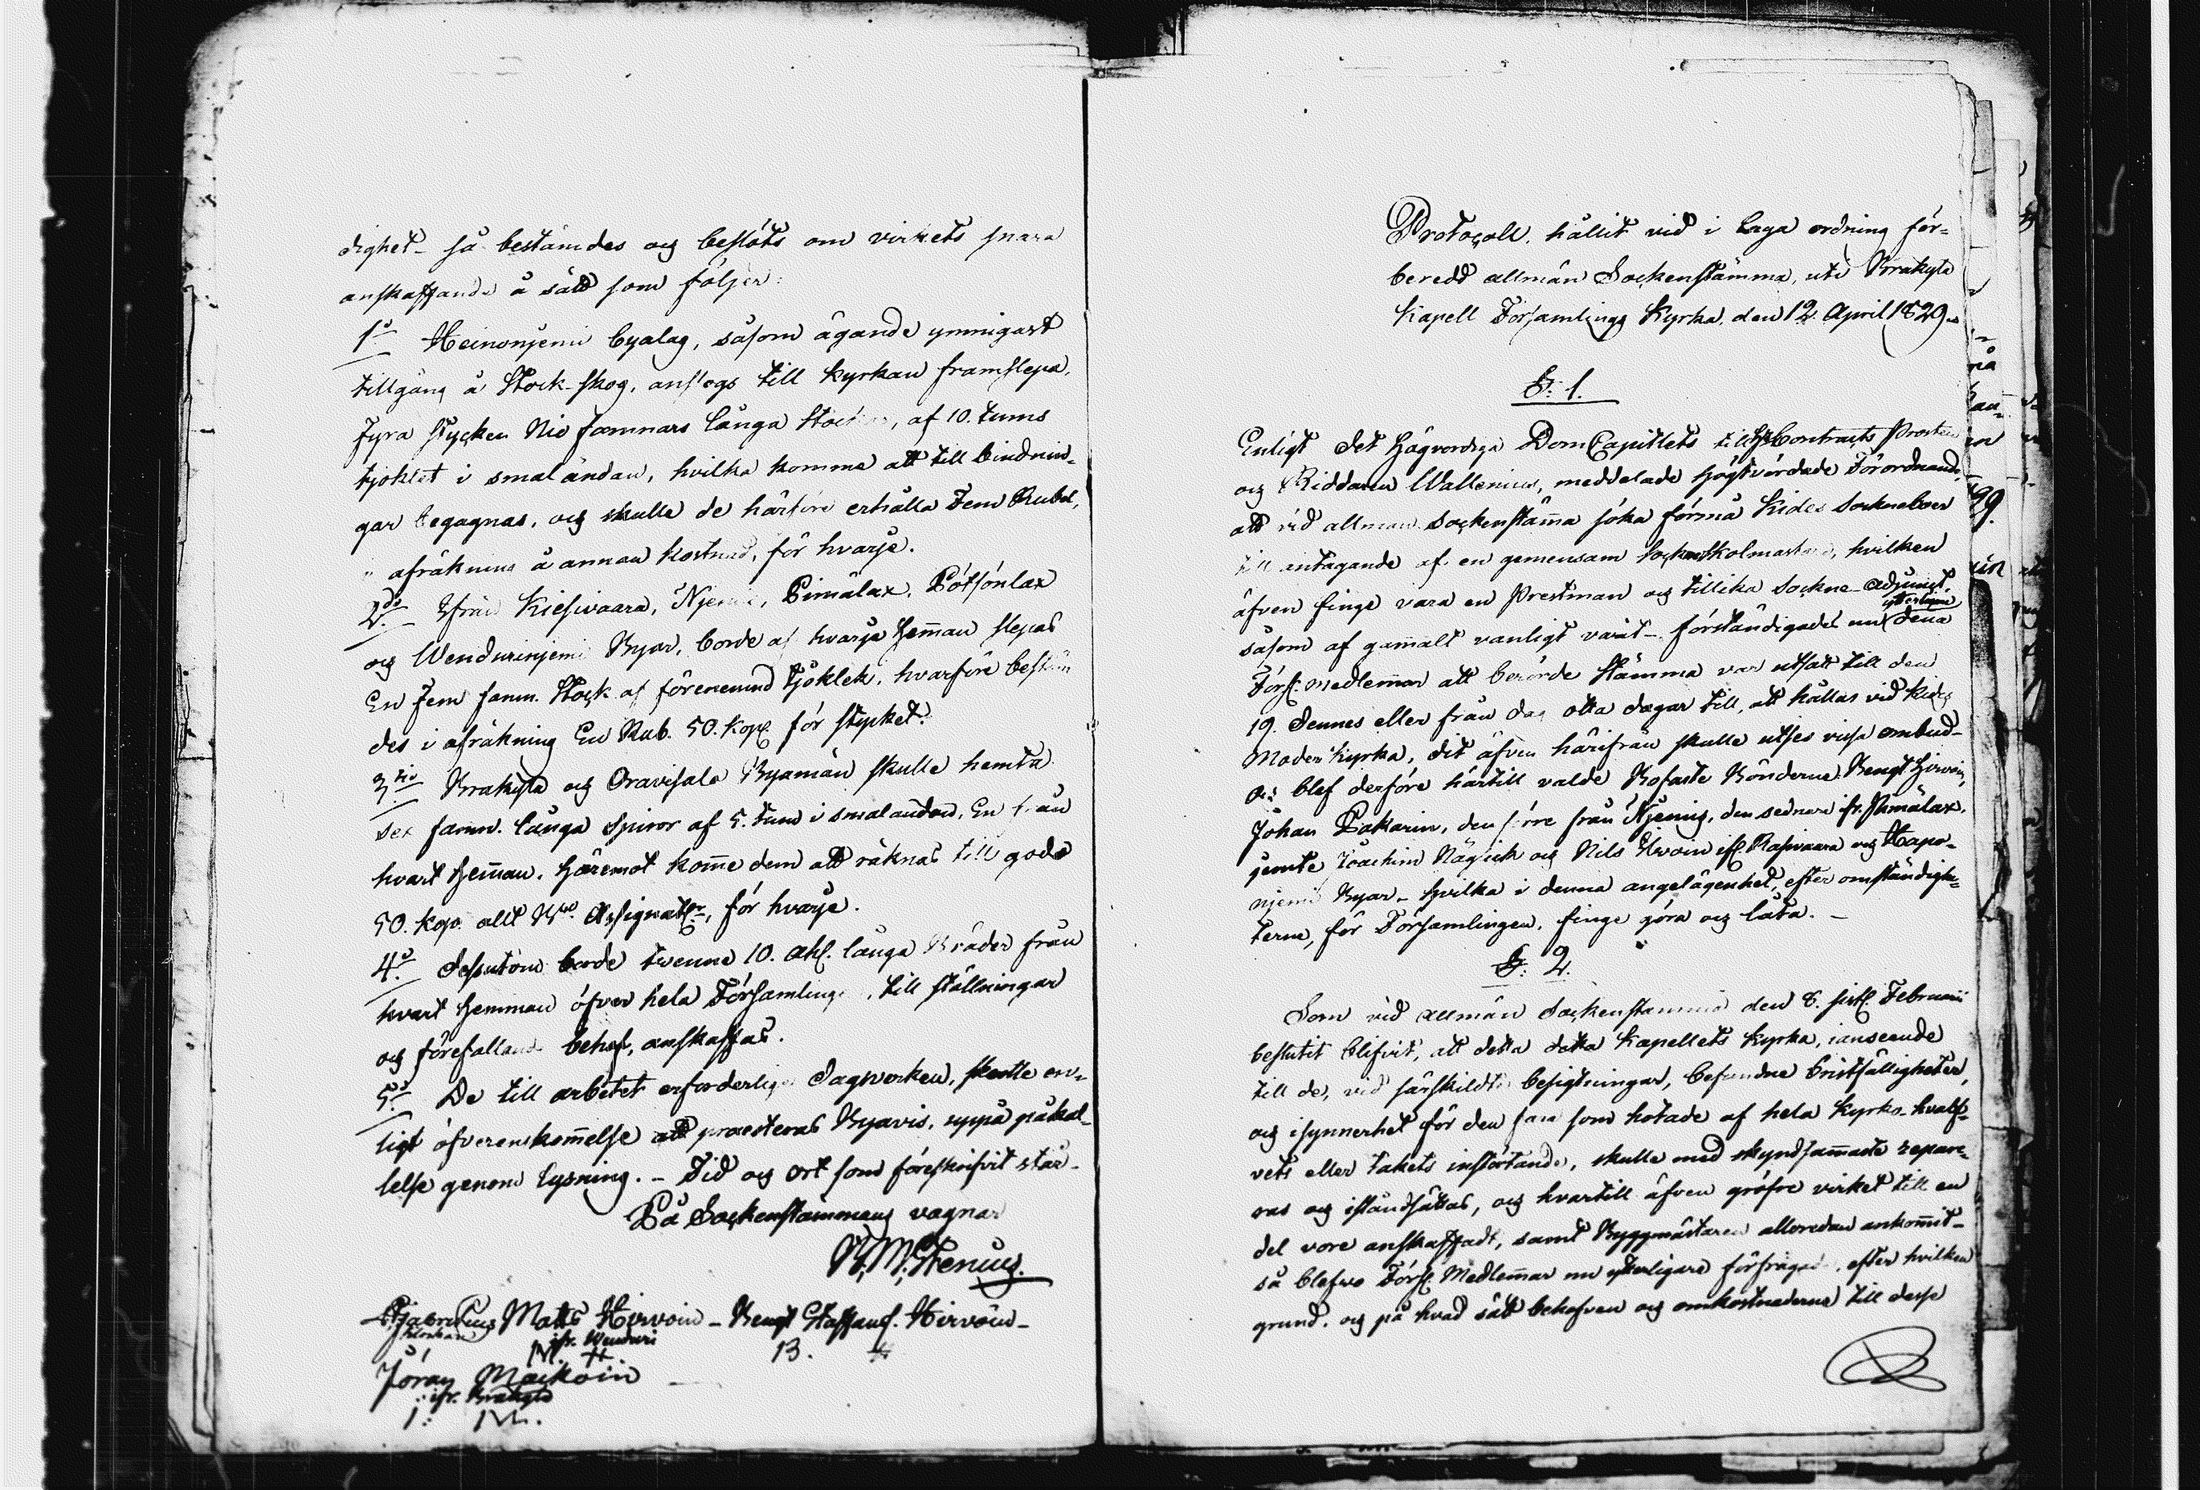 dighet - så bestämdes og beslöts om virkets snara
anskaffande å sätt som följer:
1o Heinonjemi byalag, såsom ägande ymnigast
tillgång å Stock-skog, anslogs till kyrkan framslepa,
fyra stycken Nio famnars långa Stockar, af 10. tums
tjoklek i smaländan, hvilka komma att till bindnin-
gar begagnas, och skulle de härföre erhålla Fem Rubel,
i afräkning å annan kostnad, för hvarje.
2do Ifrån Kiesivaara, Njemis, Pimälax, Pötsönlax
og Wendurinjemi Byar, borde af hvarje Hem̄an slepas
En Fem famn. Stock af förenemnd tjoklek, hvarföre bestäm
des i afräkning En Rub. 50. Kop. för stycket.
3tio Brakyla og Oravisalo Byamän skulle hemta
sex famn. långa Spiror af 5. tum i smaländan, En från
hvart Hem̄an. Häremot kom̄e dem att räknas till godo
50. kop. allt i Bco Assignatr, för hvarje.
4o Desutom borde tvenne 10. aln. långa Bräder från
hvart Hemman öfver hela Församlingen, till ställningar
og förefallande behof, anskaffas.
5o De till arbetet erforderliga Dagsverken, skulle en-
ligt öfverenskom̄else att praesteras Byavis, uppå påkal-
lelse genom lysning. - Tid og ort som föreskrifvit står -
På Sockenstämmans vagnar
N. M. Stenius.
Gabr. Matts Hirvoin - Bengt Staffans. Hirvoin -
klockare ifr. Wenduri
M. H 13. H
Jöran Mäckoin
ifr. Brakyla
I: M.
Protocoll, hållit vid i laga ordning för-
beredd allmän Sockenstämma, uti Brakyla
Kapell Församlings Kyrka, den 12. April 1829.
§: 1.
Enligt det Högvördiga DomCapitlets till H. Contracts Prosten
og Riddaren Wallenius, meddelade Högtvördade Förordnande,
att vid allmän Sockenstäm̄a söka förmå Kides Socknebor
till antagande af en gemensam Sockneskolmästare, hvilken
äfven finge vara en Prestman og tillika Sockne-Adjunct
såsom af gam̄alt vanligt varit - förständigades nu ytterligare dena
Förs: medlem̄ar att berörde Stämma var utsatt till den
19. dennes eller från dag otta dagar till, att hållas vid Kides
Moder Kyrka, dit äfven härifrån skulle utses vissa ombud -
og blef derföre härtill valde Bofaste Bönderne Bengt Hirvoin,
Johan Pakarin, den förre från Njemis, den sednare ifr. Pimälax,
jemte Joachim Nägick og Nils Hirvoin ifr. Rasivaara og Hapo-
njemi Byar - hvilka i denna angelägenhet, efter omständighe-
terne, för Församlingen, finge göra og låta. -
§: 2.
Som vid allmän Sockenstämma den 8. sistl. Februarii
beslutit blifvit, att detta detta Kapellets Kyrka, i anseende
till de, vid särskildta besigtningar, befundne bristfälligheter,
og isynnerhet för den fara som hotade af hela Kyrko-hvalf-
vets eller takets instörtande, skulle med skyndsam̄aste repare-
ras og iståndsättas, og hvartill äfven gröfre virket till en
del vore anskaffadt, samt Byggmästaren alloredan ankom̄it -
så blefvo Förs: Medlem̄ar nu ytterligare förfrågade, efter hvilken
grund, og på hvad sätt behofven og omkostnaderne till desse